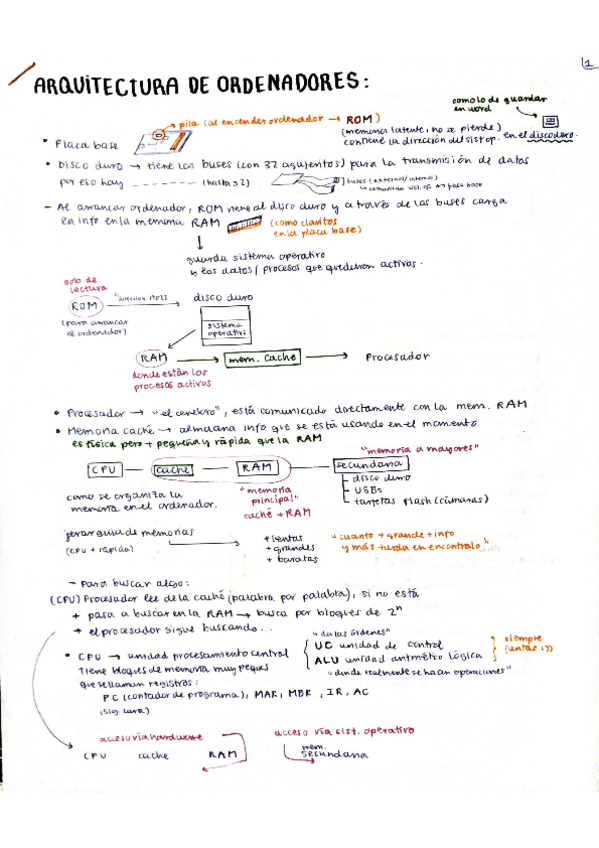 1
ARQUITECTURA DE ORDENADORES:
como lo de guardar
en word
pila (al encender ordenador → ROM)
(memoria latente, no se pierde)
contiene la dirección del sist op. en el disco duro.
• Placa base
• Disco duro → tiene los buses (con 32 agujeritos) para la transmisión de datos
por eso hay ------- (hasta 32)
buses (externos/internos)
comunican disc. op. en placa base
- Al arrancar ordenador, ROM viene al disco duro y a través de los buses carga
la info en la memoria RAM (como clavitos
en la placa base)
↓
guarda sistema operativo
y los datos/procesos que quedaron activos.
solo de
lectura
ROM
"direccion
disco duro
(para arrancar
el ordenador)
sistema
operativo
RAM → mem. cache → Procesador
donde están los
procesos activos
• Procesador → "el cerebro", está comunicado directamente con la mem. RAM
• Memoria caché → almacena info que se está usando en el momento
es física pero + pequeña y rápida que la RAM
"memoria a mayores"
CPU — cache — RAM — secundaria
disco duro
USBs
tarjetas flash (cámaras)
como se organiza la
memoria en el ordenador.
"memoria
principal"
caché + RAM
jerarquía de memorias
(CPU + rápida)
+ lentas
+ grandes
+ baratas
"cuanto + grande + info
y más tarda en encontrarlo"
- Para buscar algo:
(CPU) Procesador lee de la caché (palabra por palabra), si no está
+ pasa a buscar en la RAM → busca por bloques de 2ⁿ
+ el procesador sigue buscando...
"da las órdenes"
• CPU → unidad procesamiento central
UC unidad de control
ALU unidad aritmético lógica
siempre
(juntas :))
"donde realmente se hacen operaciones"
Tiene bloques de memoria muy peques
que se llaman registros:
PC (contador de programa), MAR, MBR, IR, AC
(sig. cara)
acceso vía hardware
acceso vía sist. operativo
CPU cache RAM
mem.
secundaria